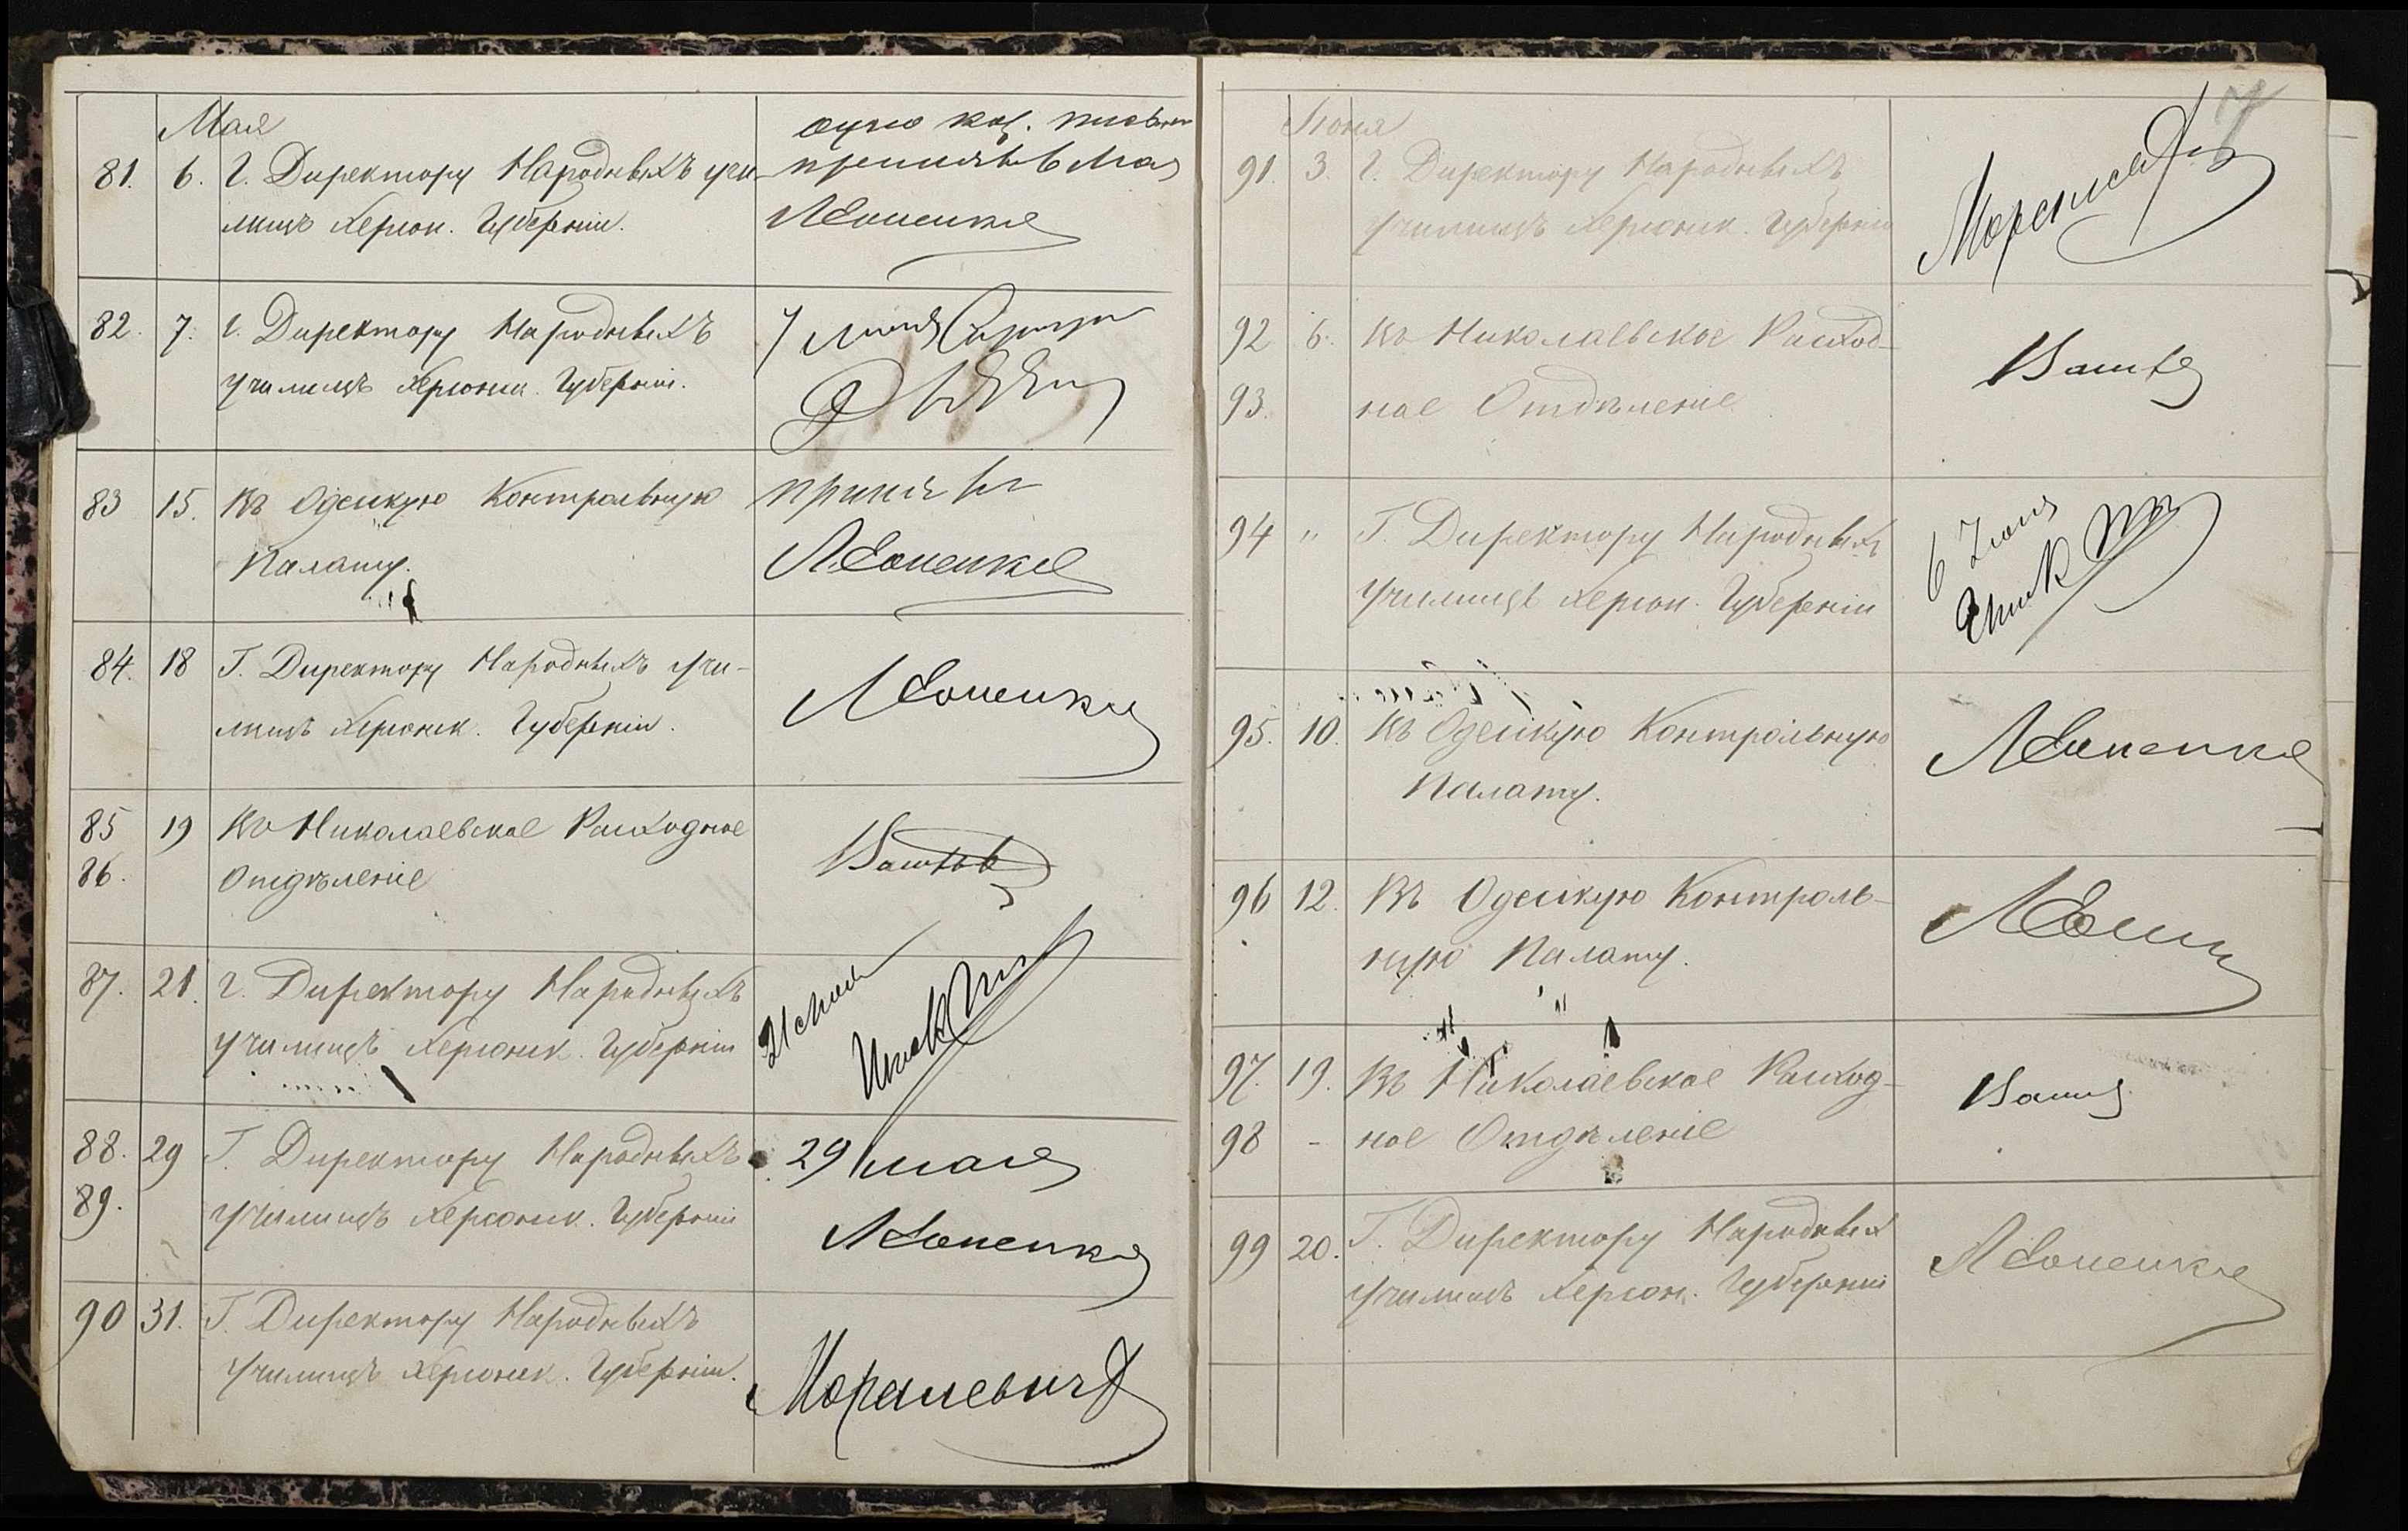 Мая
81. 6. Г. Директору Народныхъ учи-
лищъ Херсон. Губерніи.
принялъ 6 Мая
82. 7. Г. Директору Народныхъ
училищъ Херсонск. Губерніи.
7 мая
83 15. Въ Одесскую Контрольную
Палату.
принялъ
84. 18 Г. Директору Народныхъ учи-
лищъ Херсонск. Губерніи.
85 19 Въ Николаевское Расходное
86. Отдѣленіе
87. 21. Г. Директору Народныхъ
училищъ Херсонск. Губерніи
21 мая
88. 29 Г. Директору Народныхъ
89. училищъ Херсонск. Губерніи
29 мая
90 31. Г. Директору Народныхъ
училищъ Херсонск. Губерніи.
Іюня
91. 3. Г. Директору Народныхъ
училищъ Херсонск. Губерніи
92 6. Въ Николаевское Расход-
93. ное Отдѣленіе
94 " Г. Директору Народныхъ
училищъ Херсон. Губерніи
6 Іюня
95. 10. Въ Одесскую Контрольную
Палату.
96 12. Въ Одесскую Контроль-
ную Палату.
97. 19. Въ Николаевское Расход-
98 - ное Отдѣленіе
99 20. Г. Директору Народных
училищъ Херсон. Губерніи